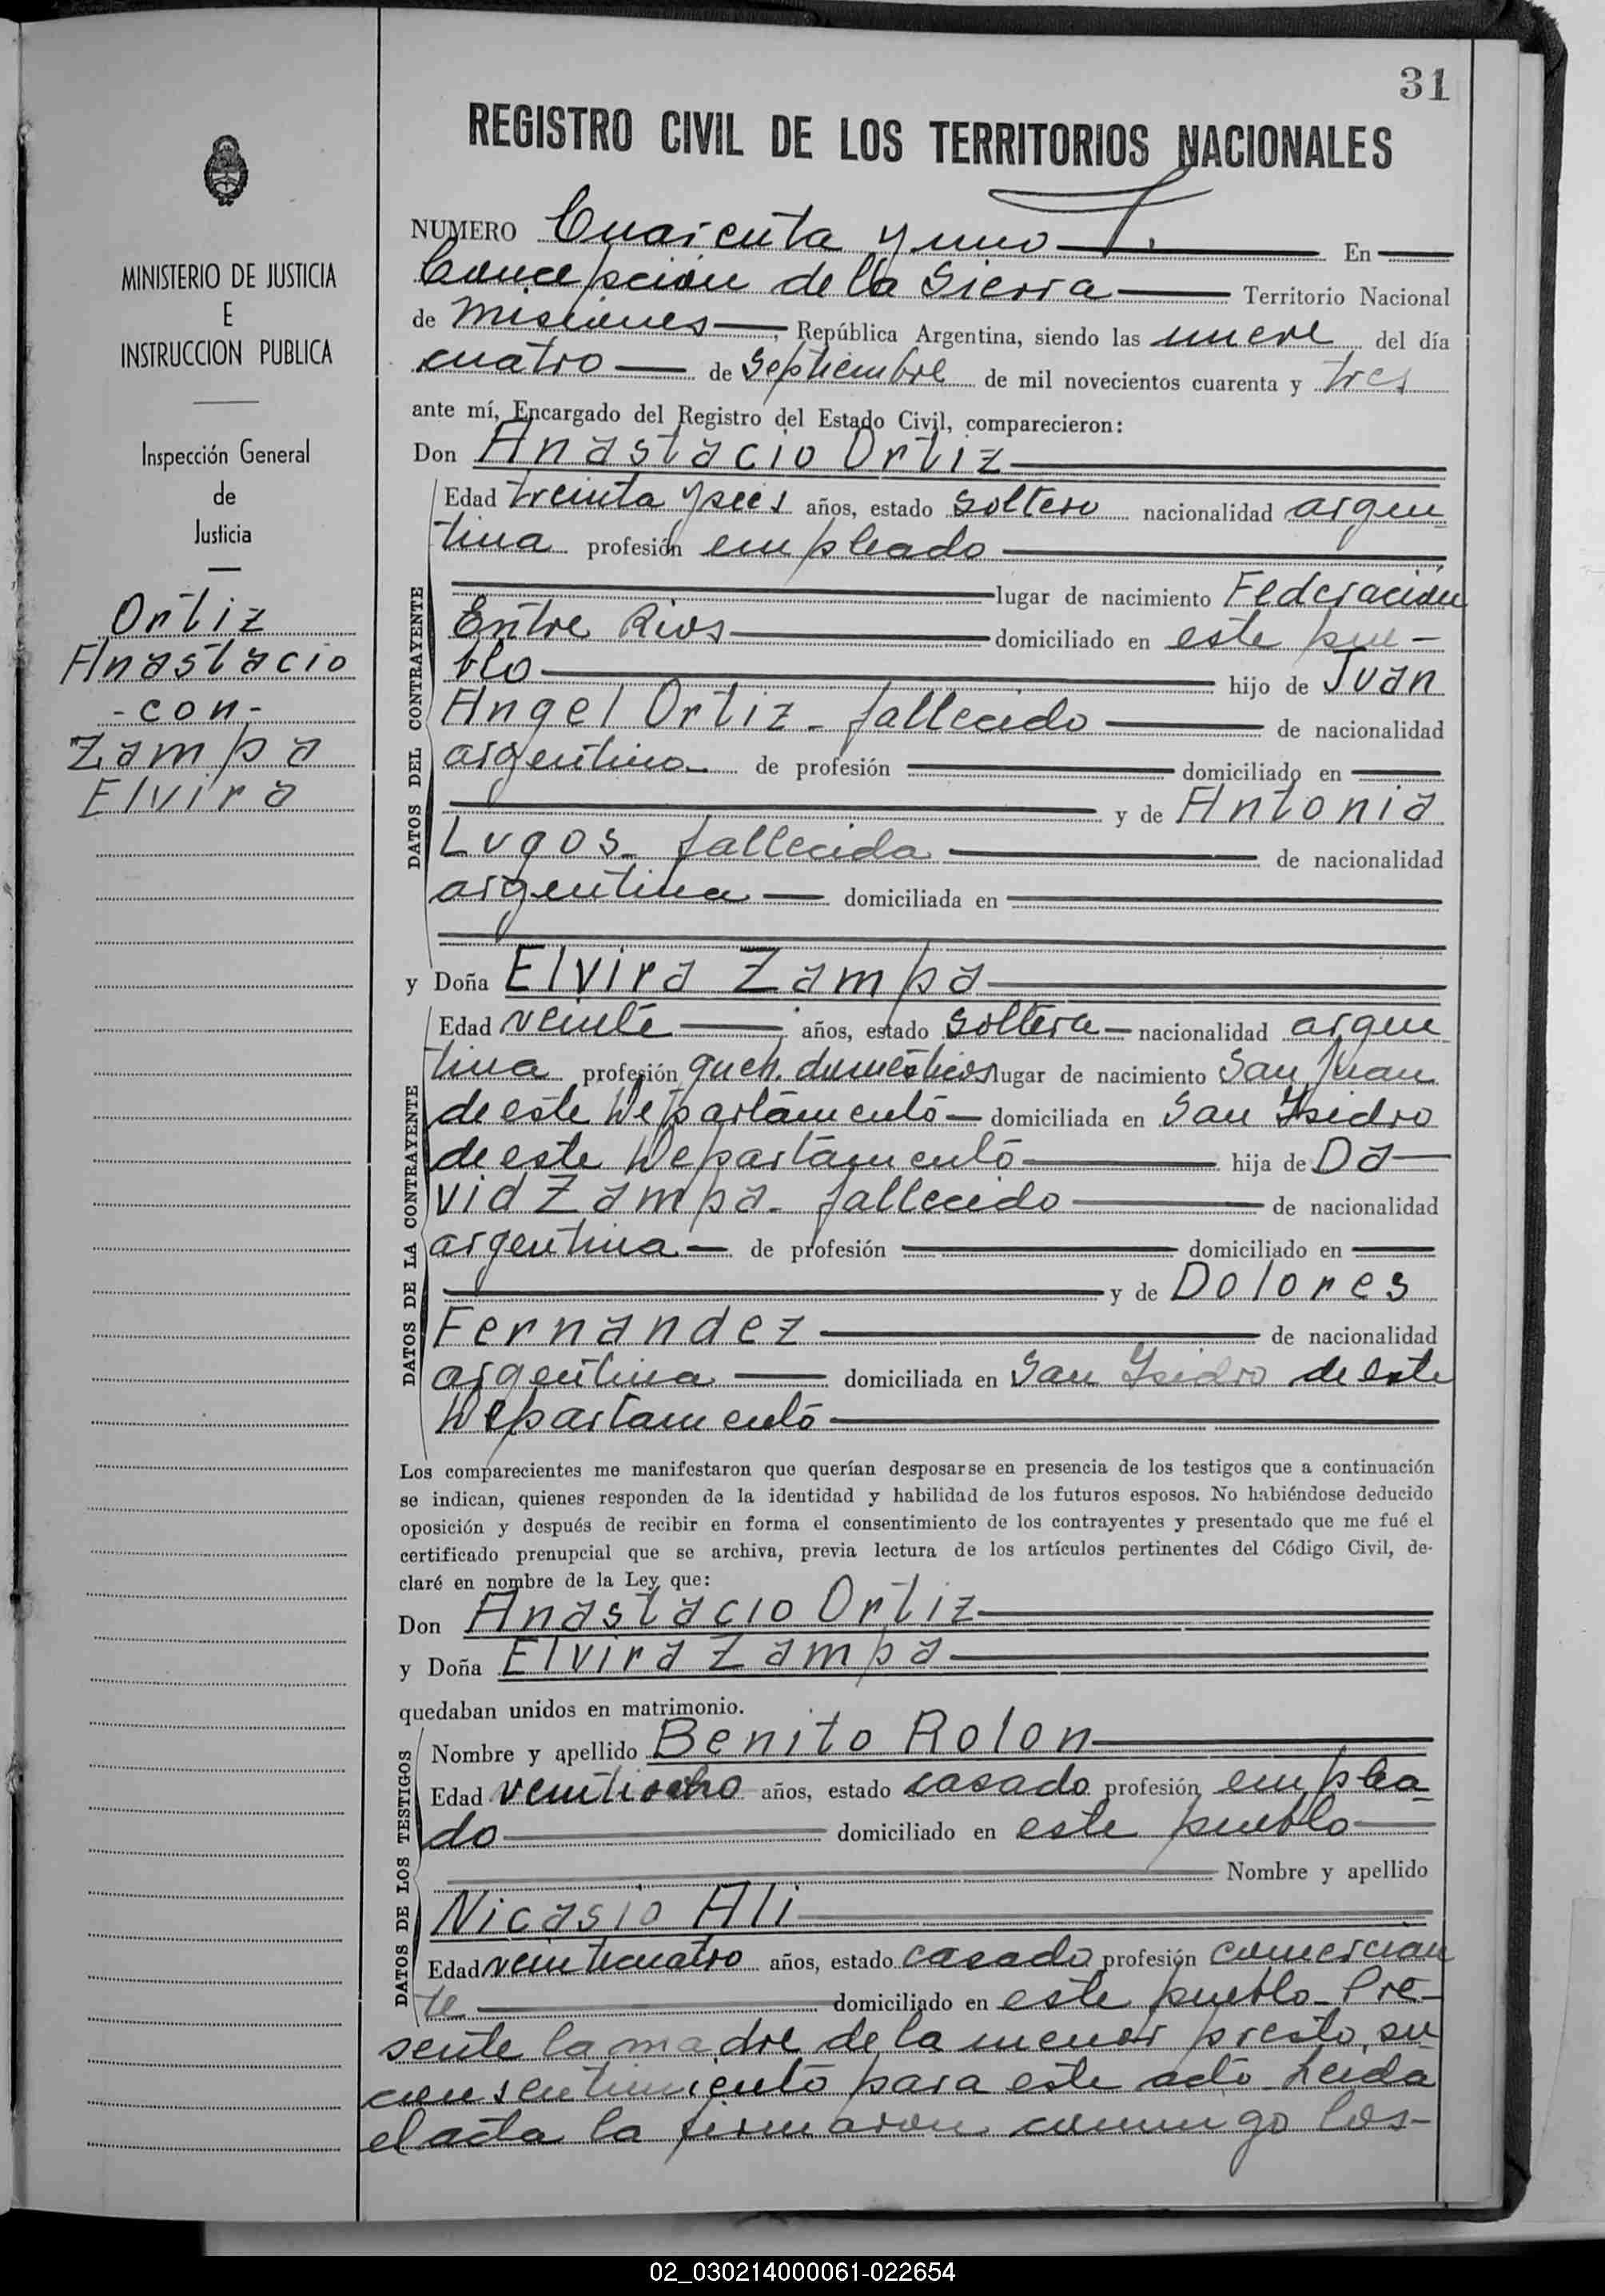 31
REGISTRO CIVIL DE LOS TERRITORIOS NACIONALES
MINISTERIO DE JUSTICIA
E
INSTRUCCION PUBLICA
Inspección General
de
Justicia
Ortiz
Anastacio
-con-
Zampa
Elvira
NUMERO Cuarenta y uno En
Concepcion de la Sierra Territorio Nacional
de Misiones, República Argentina, siendo las nueve del día
cuatro de Septiembre de mil novecientos cuarenta y tres
ante mí, Encargado del Registro del Estado Civil, comparecieron:
Don Anastacio Ortiz
DATOS DEL CONTRAYENTE
Edad treinta y seis años, estado soltero nacionalidad argen
tina profesión empleado
lugar de nacimiento Federacion
Entre Rios domiciliado en este pue-
blo hijo de Juan
Angel Ortiz - fallecido de nacionalidad
argentina de profesión domiciliado en
y de Antonia
Lugos - fallecida de nacionalidad
argentina domiciliada en
y Doña Elvira Zampa
DATOS DE LA CONTRAYENTE
Edad veinte años, estado soltera nacionalidad argen
tina profesión queh. domésticos lugar de nacimiento San Juan
de este Departamento domiciliada en San Isidro
de este Departamento hija de Da
vid Zampa - fallecido de nacionalidad
argentina de profesión domiciliado en
y de Dolores
Fernandez de nacionalidad
argentina domiciliada en San Isidro de este
Departamento
Los comparecientes me manifestaron que querían desposarse en presencia de los testigos que a continuación
se indican, quienes responden de la identidad y habilidad de los futuros esposos. No habiéndose deducido
oposición y después de recibir en forma el consentimiento de los contrayentes y presentado que me fué el
certificado prenupcial que se archiva, previa lectura de los artículos pertinentes del Código Civil, de-
claré en nombre de la Ley que:
Don Anastacio Ortiz
y Doña Elvira Zampa
quedaban unidos en matrimonio.
DATOS DE LOS TESTIGOS
Nombre y apellido Benito Rolon
Edad veintiocho años, estado casado profesión emplea
do domiciliado en este pueblo
Nombre y apellido
Nicasio Ali
Edad veinticuatro años, estado casado profesión comercian
te domiciliado en este pueblo - Pre-
sente la madre de la menor presto su
consentimiento para este acto - Leida
el acta la firmaron conmigo los-
02_030214000061-022654